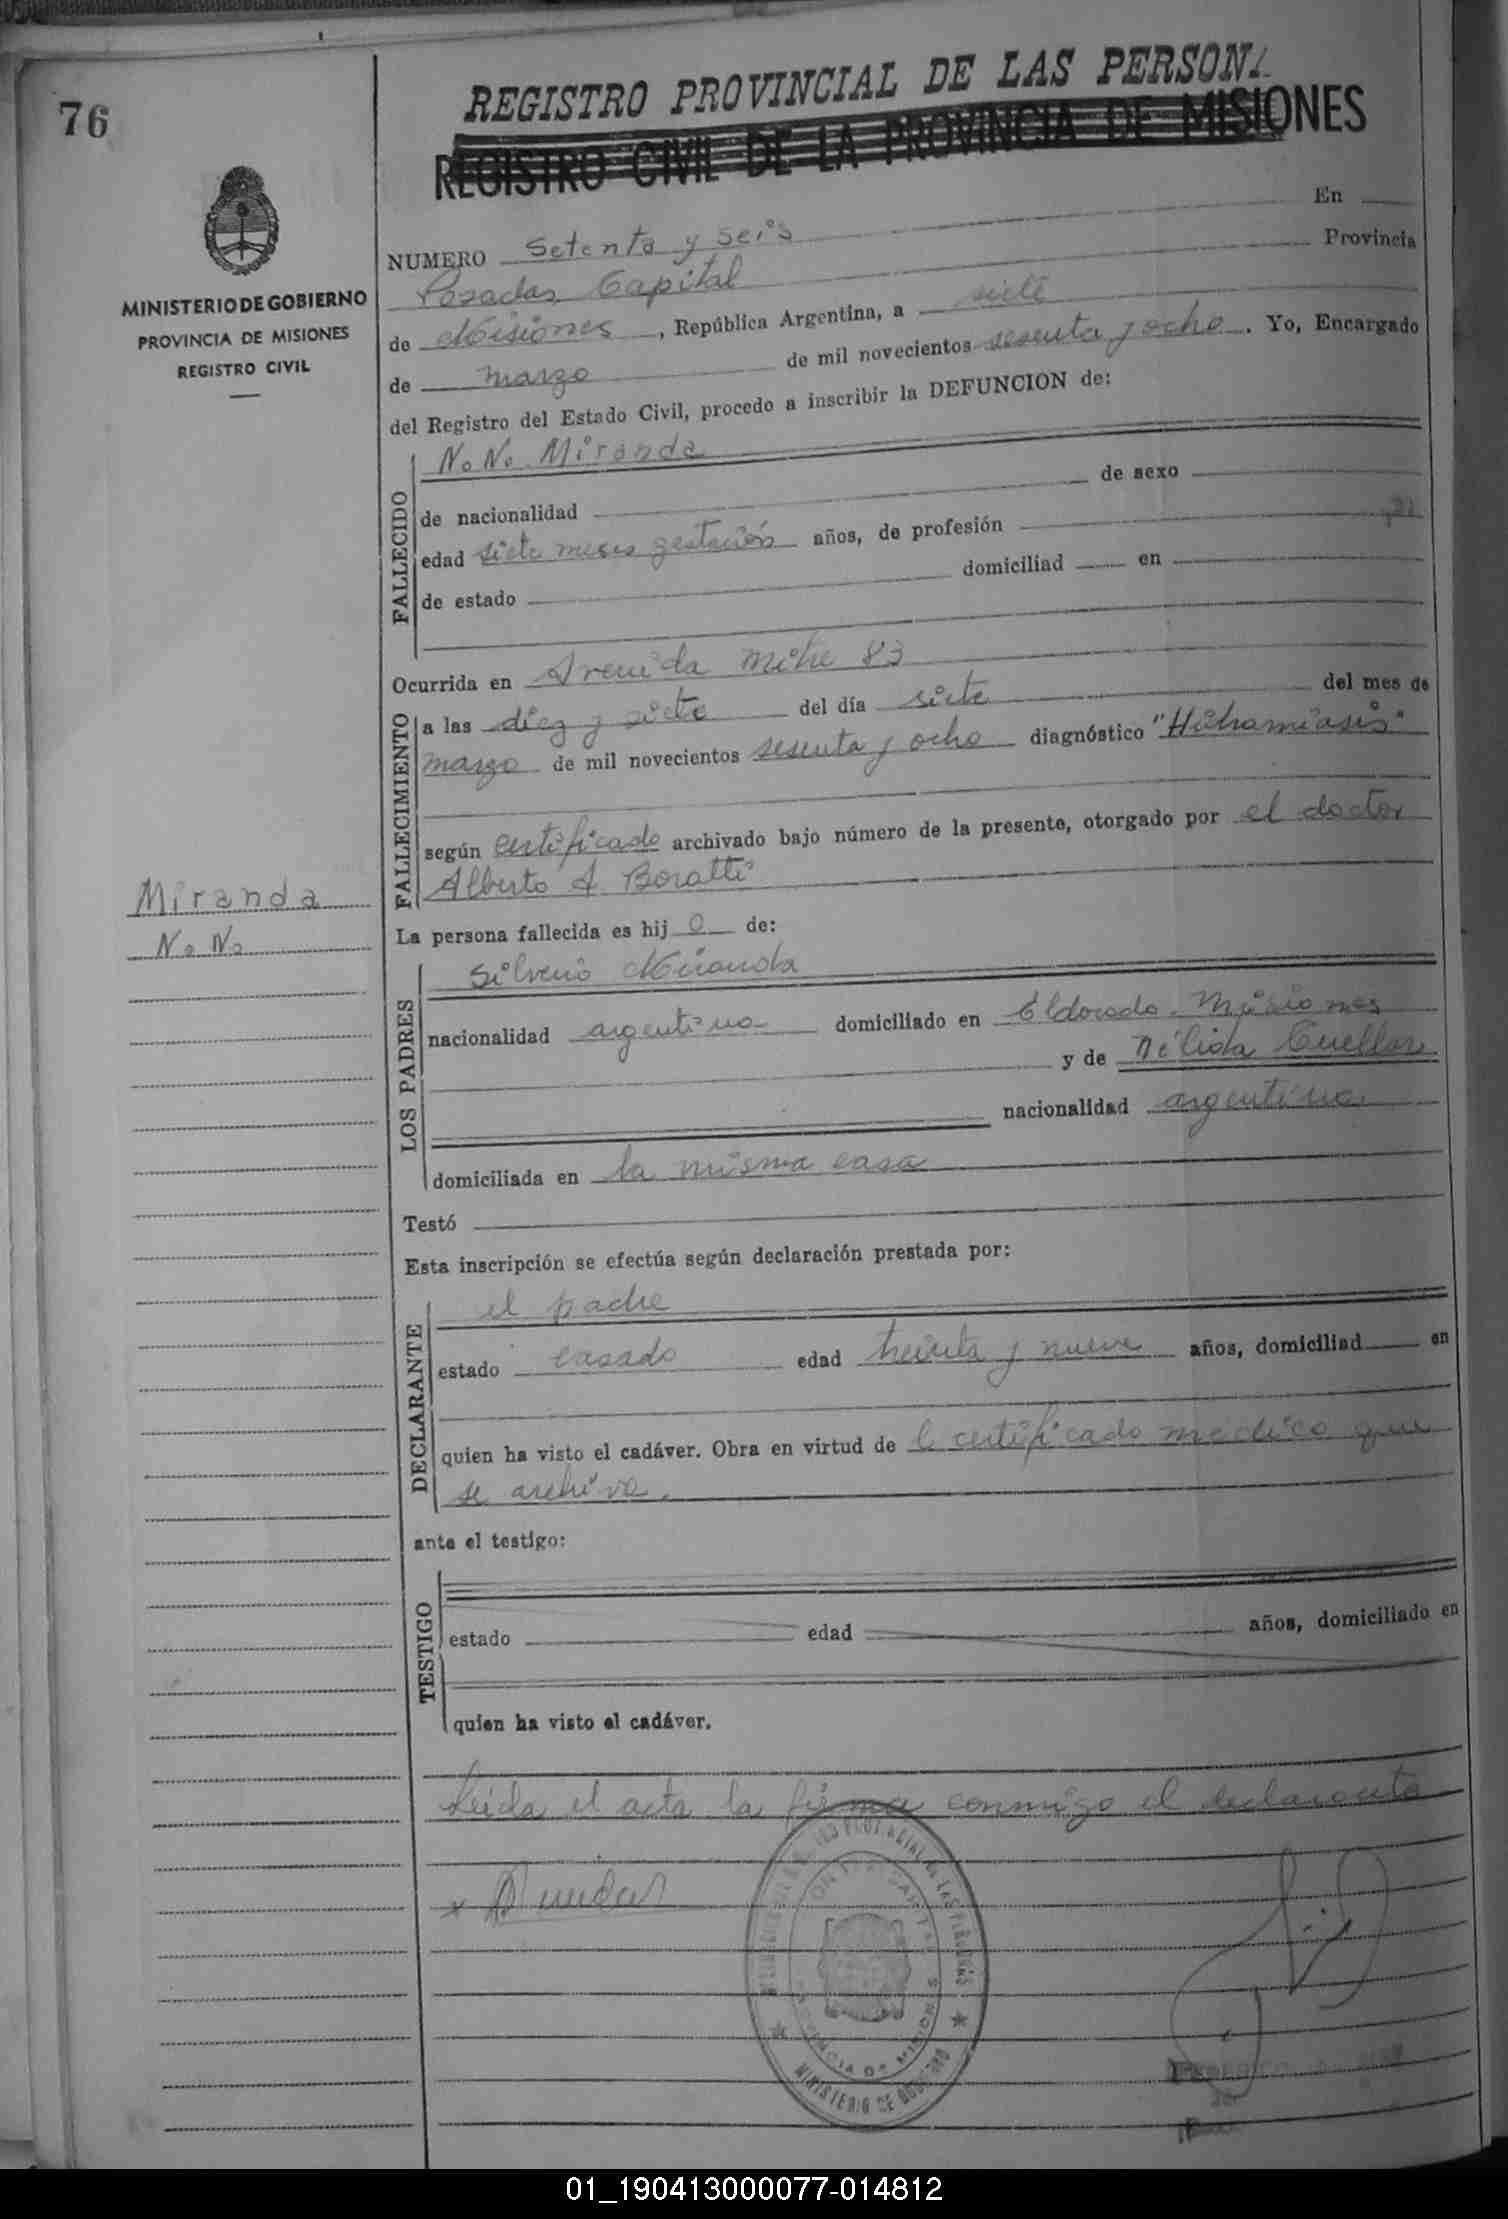 76
REGISTRO PROVINCIAL DE LAS PERSONA
REGISTRO CIVIL DE LA PROVINCIA DE MISIONES
MINISTERIO DE GOBIERNO
PROVINCIA DE MISIONES
REGISTRO CIVIL
NUMERO Setenta y seis En
Posadas, Capital Provincia
de Misiones, República Argentina, a siete
de marzo de mil novecientos sesenta y ocho. Yo, Encargado
del Registro del Estado Civil, procedo a inscribir la DEFUNCION de:
FALLECIDO
N.N. Miranda
de nacionalidad de sexo
edad siete meses gestación años, de profesión
de estado domiciliad en
Ocurrida en Avenida Mitre 83
FALLECIMIENTO
a las diez y siete del día siete del mes de
marzo de mil novecientos sesenta y ocho diagnóstico
según certificado archivado bajo número de la presente, otorgado por el doctor
Alberto A. Boratti
Miranda
N.N.
La persona fallecida es hij o de:
LOS PADRES
Silverio Miranda
nacionalidad argentina domiciliado en Eldorado. Misiones
y de Nélida Cuellar
nacionalidad argentina
domiciliada en la misma casa
Testó
Esta inscripción se efectúa según declaración prestada por:
DECLARANTE
el padre
estado casado edad treinta y nueve años, domiciliad en
quien ha visto el cadáver. Obra en virtud de l certificado medico que
se archiva.
ante el testigo:
TESTIGO
estado edad años, domiciliado en
quien ha visto el cadáver.
Leida el acta la firma conmigo el declarante
MINISTERIO DE GOBIERNO
PROVINCIA DE MISIONES
01_190413000077-014812